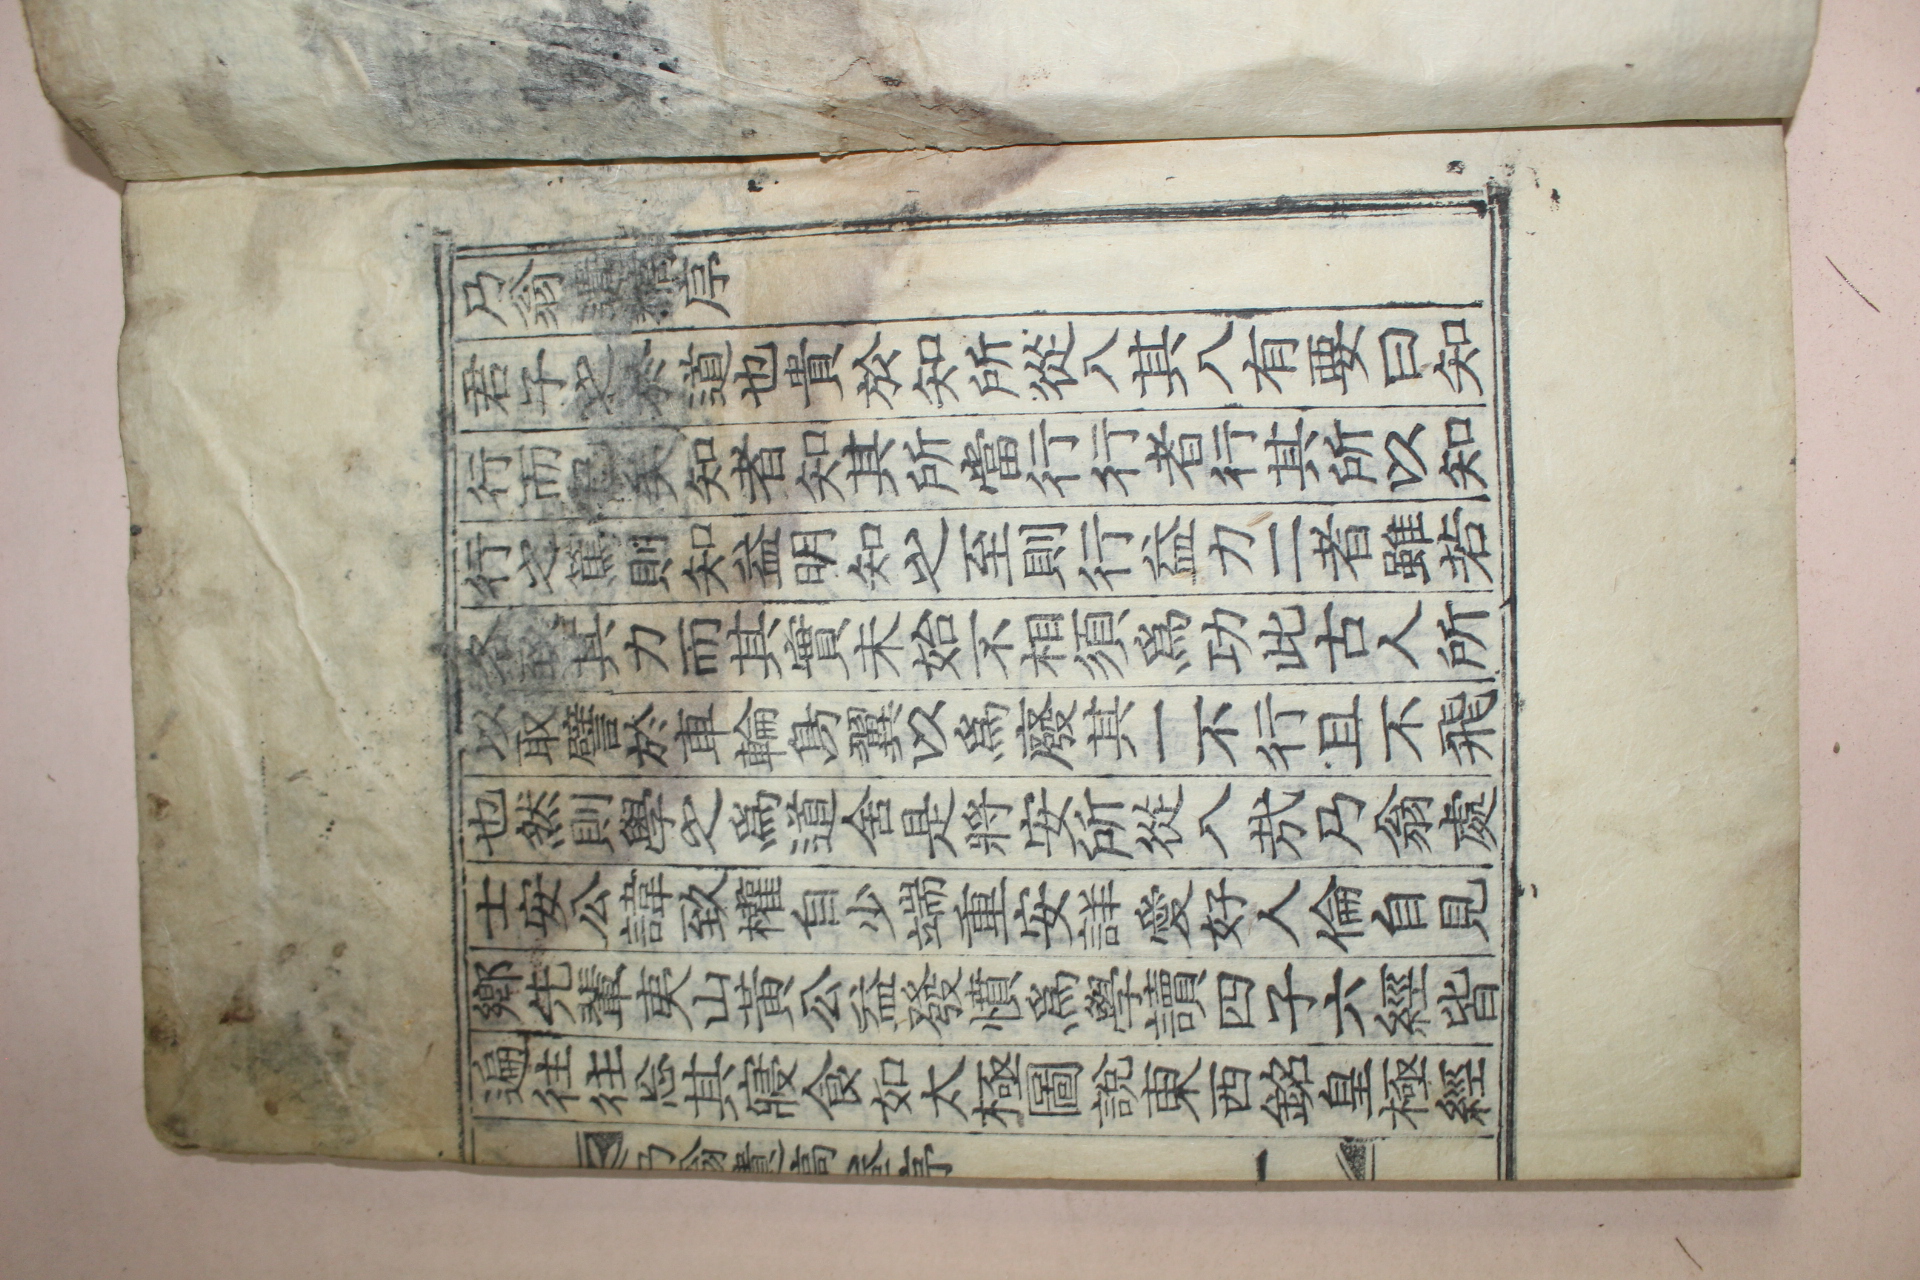 乃翁遺稿序
君子之於道也貴於知所從入其入有要曰知
行而已矣知者知其所當行行者行其所以知
行之篤則知益明知之至則行益力二者雖若
各致其力而其實未始不相須爲功此古人所
以取譬於車輪鳥翼以爲廢其一不行且不飛
也然則學之爲道舍是將安所從入哉乃翁處
士安公諱致權自少端重安詳愛好人倫自見
鄕先輩夷山黃公益發憤爲學讀四子六經皆
遍往往忘其寢食如太極圖說東西銘皇極經
乃翁遺稿 序 一